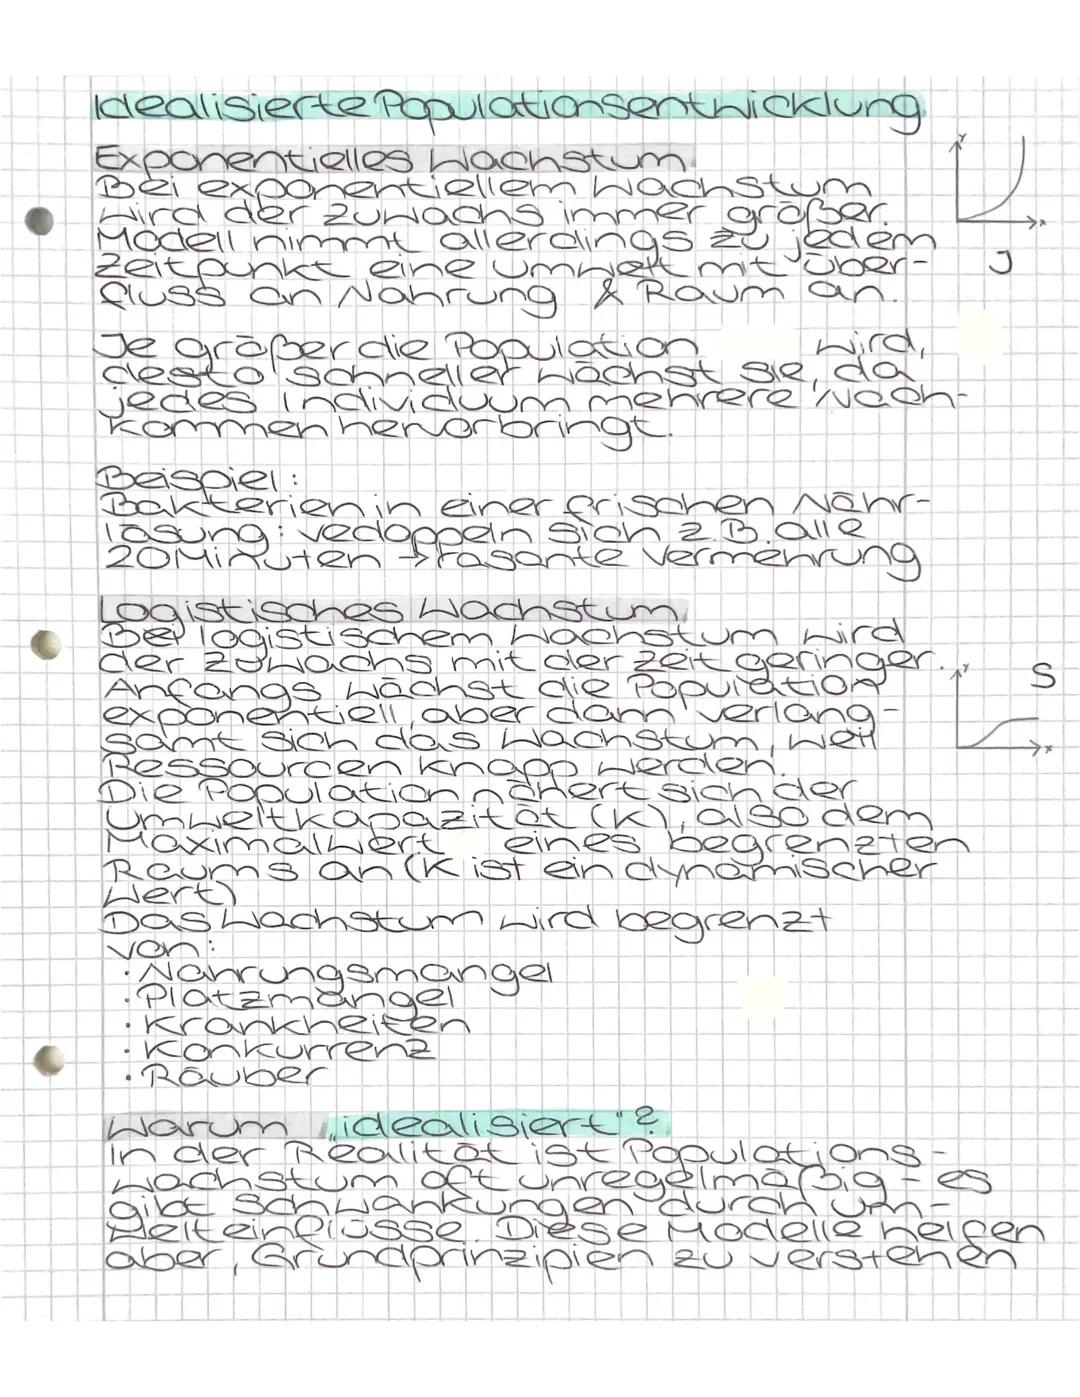 Idealisierte Populationsentwicklung
Exponentielles Wachstum
Bei exponentiellem Wachstum
wird der Zuwachs immer größer.
Modell nimmt allerdings zu jedem
Zeitpunkt eine Umwelt mit Über-
fluss an Nahrung & Raum an.
y
x
J
Je größer die Population wird,
desto schneller wächst sie, da
jedes Individuum mehrere Nach-
kommen hervorbringt.
Beispiel:
Bakterien in einer frischen Nähr-
lösung: vedoppeln sich z.B. alle
20 Minuten → rasante Vermehrung
Logistisches Wachstum
Bei logistischem Wachstum wird
der Zuwachs mit der Zeit geringer.
Anfangs wächst die Population
exponentiell, aber dann verlang-
samt sich das Wachstum, weil
Ressourcen knapp werden.
Die Population nähert sich der
Umweltkapazität (K), also dem
Maximalwert eines begrenzten
Raums an (K ist ein dynamischer
Wert)
y
x
S
Das Wachstum wird begrenzt
von:
· Nahrungsmangel
· Platzmangel
· Krankheiten
· Konkurrenz
· Räuber
Warum „idealisiert"?
In der Realität ist Populations-
wachstum oft unregelmäßig - es
gibt Schwankungen durch Um-
welteinflüsse. Diese Modelle helfen
aber, Grundprinzipien zu verstehen